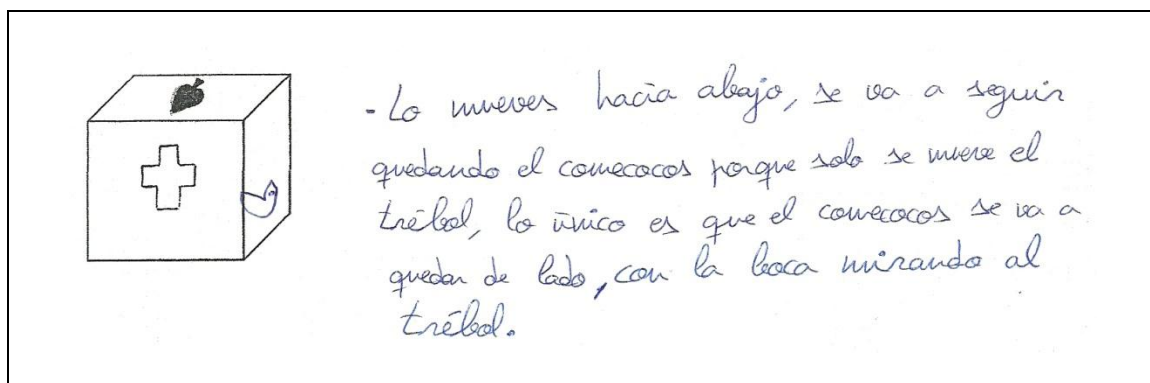 - Lo mueves hacia abajo, se va a seguir
quedando el comecocos porque solo se mueve el
trébol, lo único es que el comecocos se va a
quedar de lado, con la boca mirando al
trébol.